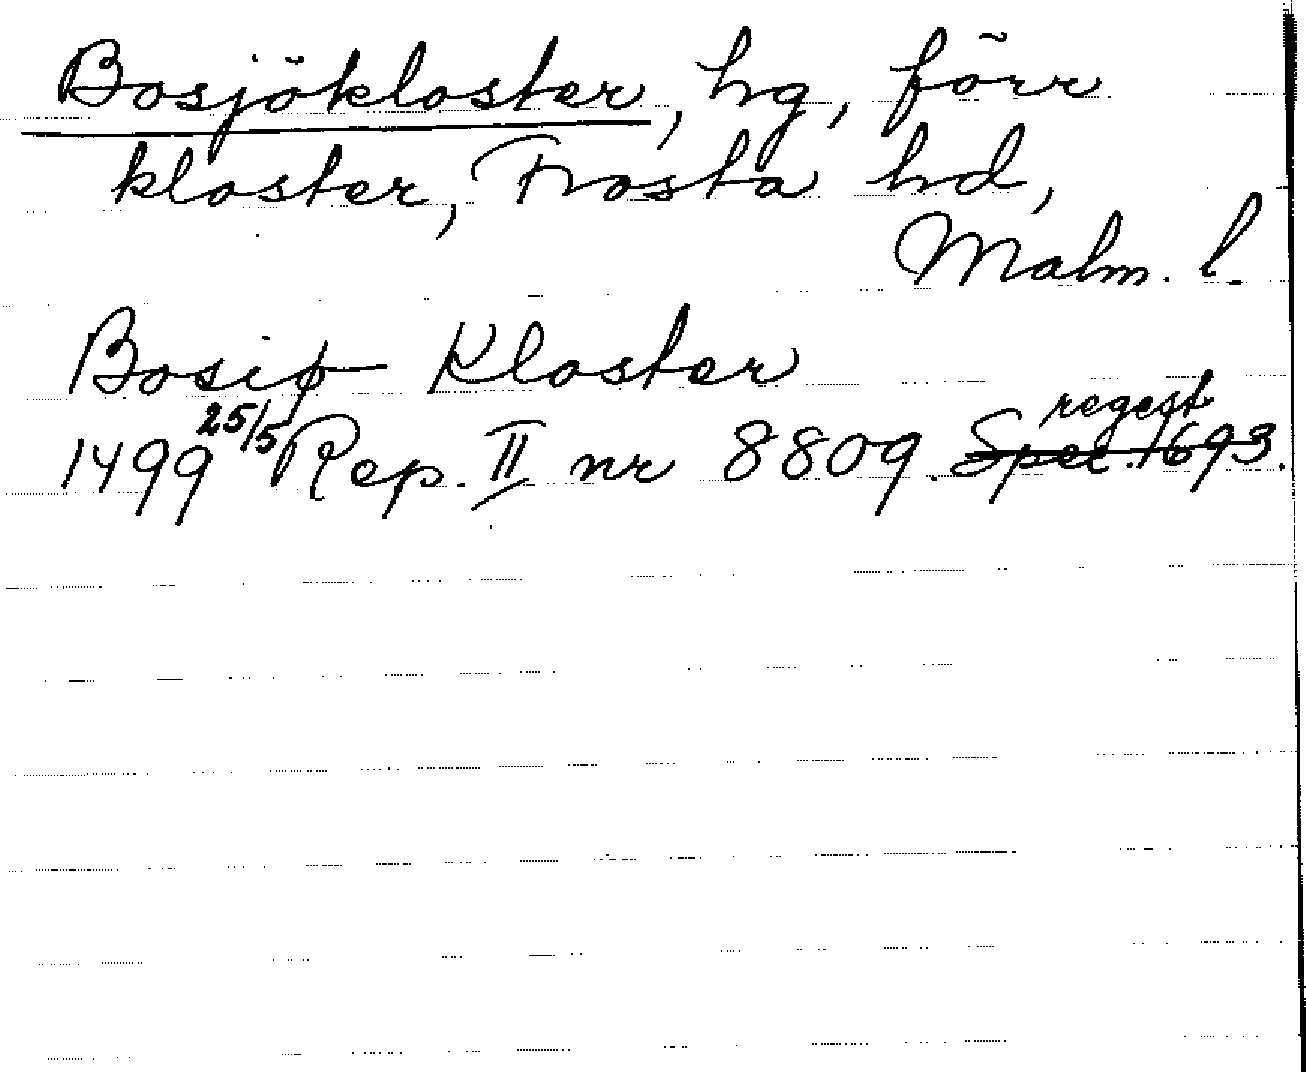 Bosjökloster, hg, förr
kloster, Frosta hd,
Malm. l.
Bosiø Kloster
1499 25/5 Rep. II nr 8809. Spec. 1693. regest